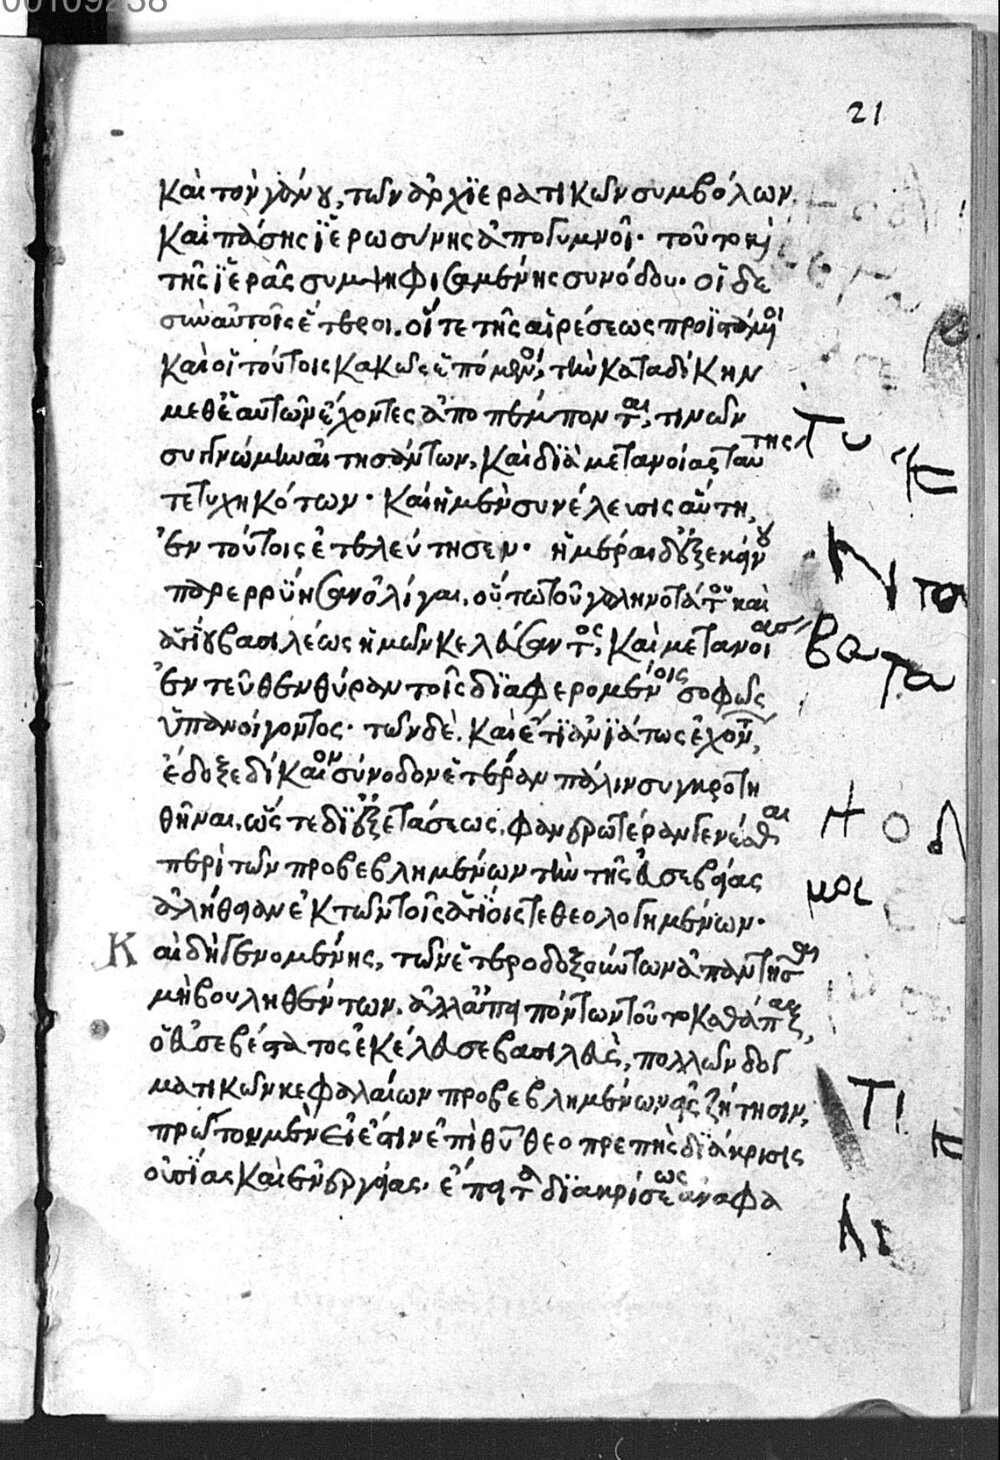 21
καὶ τὸν γάνου, τῶν ἀρχϊερατικῶν συμβόλων
καὶ πάσης ϊἑρωσύνης ἀπογυμνοῖ· τοῦτο καὶ
τῆς ϊἑρᾶς συμψηφισαμένης συνόδου· οἱ δὲ
σὺν αὐτοῖς ἕτεροι. οἵ τε τῆς αἱρέσεως προϊστάμενοι
καὶ οἱ τούτοις κακῶς ἑπόμενοι, τὴν καταδίκην
μεθ' ἑαυτῶν ἔχοντες ἀποπέμπονται, τινῶν
συγγνώμην αἰτησάντων, καὶ διὰ μετανοίας ταύτης
τετυχηκότων· καὶ ἡ μὲν συνέλευσις αὕτη,
ἐν τούτοις ἐτελεύτησεν· ἡμέραι δ' οὐξ ἐκείνου
παρερρύησαν ὀλίγαι, οὕτω τοῦ γαληνοτάτου καὶ
ἁγίου βασιλέως ἡμῶν κελεύσαντος, καὶ μετανοίας
ἐντεῦθεν θύραν τοῖς διαφερομένοις σοφῶς
ὑπανοίγοντος· τῶν δὲ. καὶ ἔτι ἀνϊάτως ἐχόντων,
ἔδοξε δίκαιον σύνοδον ἑτέραν πάλιν συγκροτη
θῆναι. ὥς τε δι' ἐξετάσεως, φανερωτέραν γενέσθαι
περὶ τῶν προβεβλημένων τὴν τῆς εὐσεβείας
ἀλήθειαν ἐκ τῶν τοῖς ἁγίοις τεθεολογημένων·
Καὶ δὴ γενομένης, τῶν ἑτεροδοξούντων ἀπαντῆσαι
μὴ βουληθέντων. ἀλλ' ἀπειπόντων τοῦτο καθάπαξ,
ὁ εὐσεβέστατος ἐκέλευσε βασιλεὺς, πολλῶν δογ
ματικῶν κεφαλαίων προβεβλημένων εἰς ζήτησιν,
πρῶτον μὲν εἰ ἔστιν ἐπὶ θεοῦ θεοπρεπὴς διάκρισις
οὐσίας καὶ ἐνεργείας· ἔπειτα διακρίσεως ἀναφα
Ντο
βατα
μοι
ΤΙ